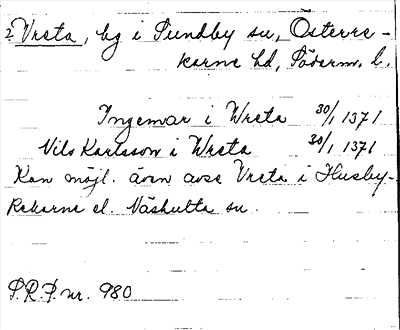 2 Vreta, by i Sundby sn, Österre-
karne hd, Söderm. l.
Ingemar i Wreta 30/1 1371
Nils Karlsson i Wreta 30/1 1371
Kan möjl. även avse Vreta i Husby-
Rekarne el. Näshulta sn.
S.R.P. nr. 980